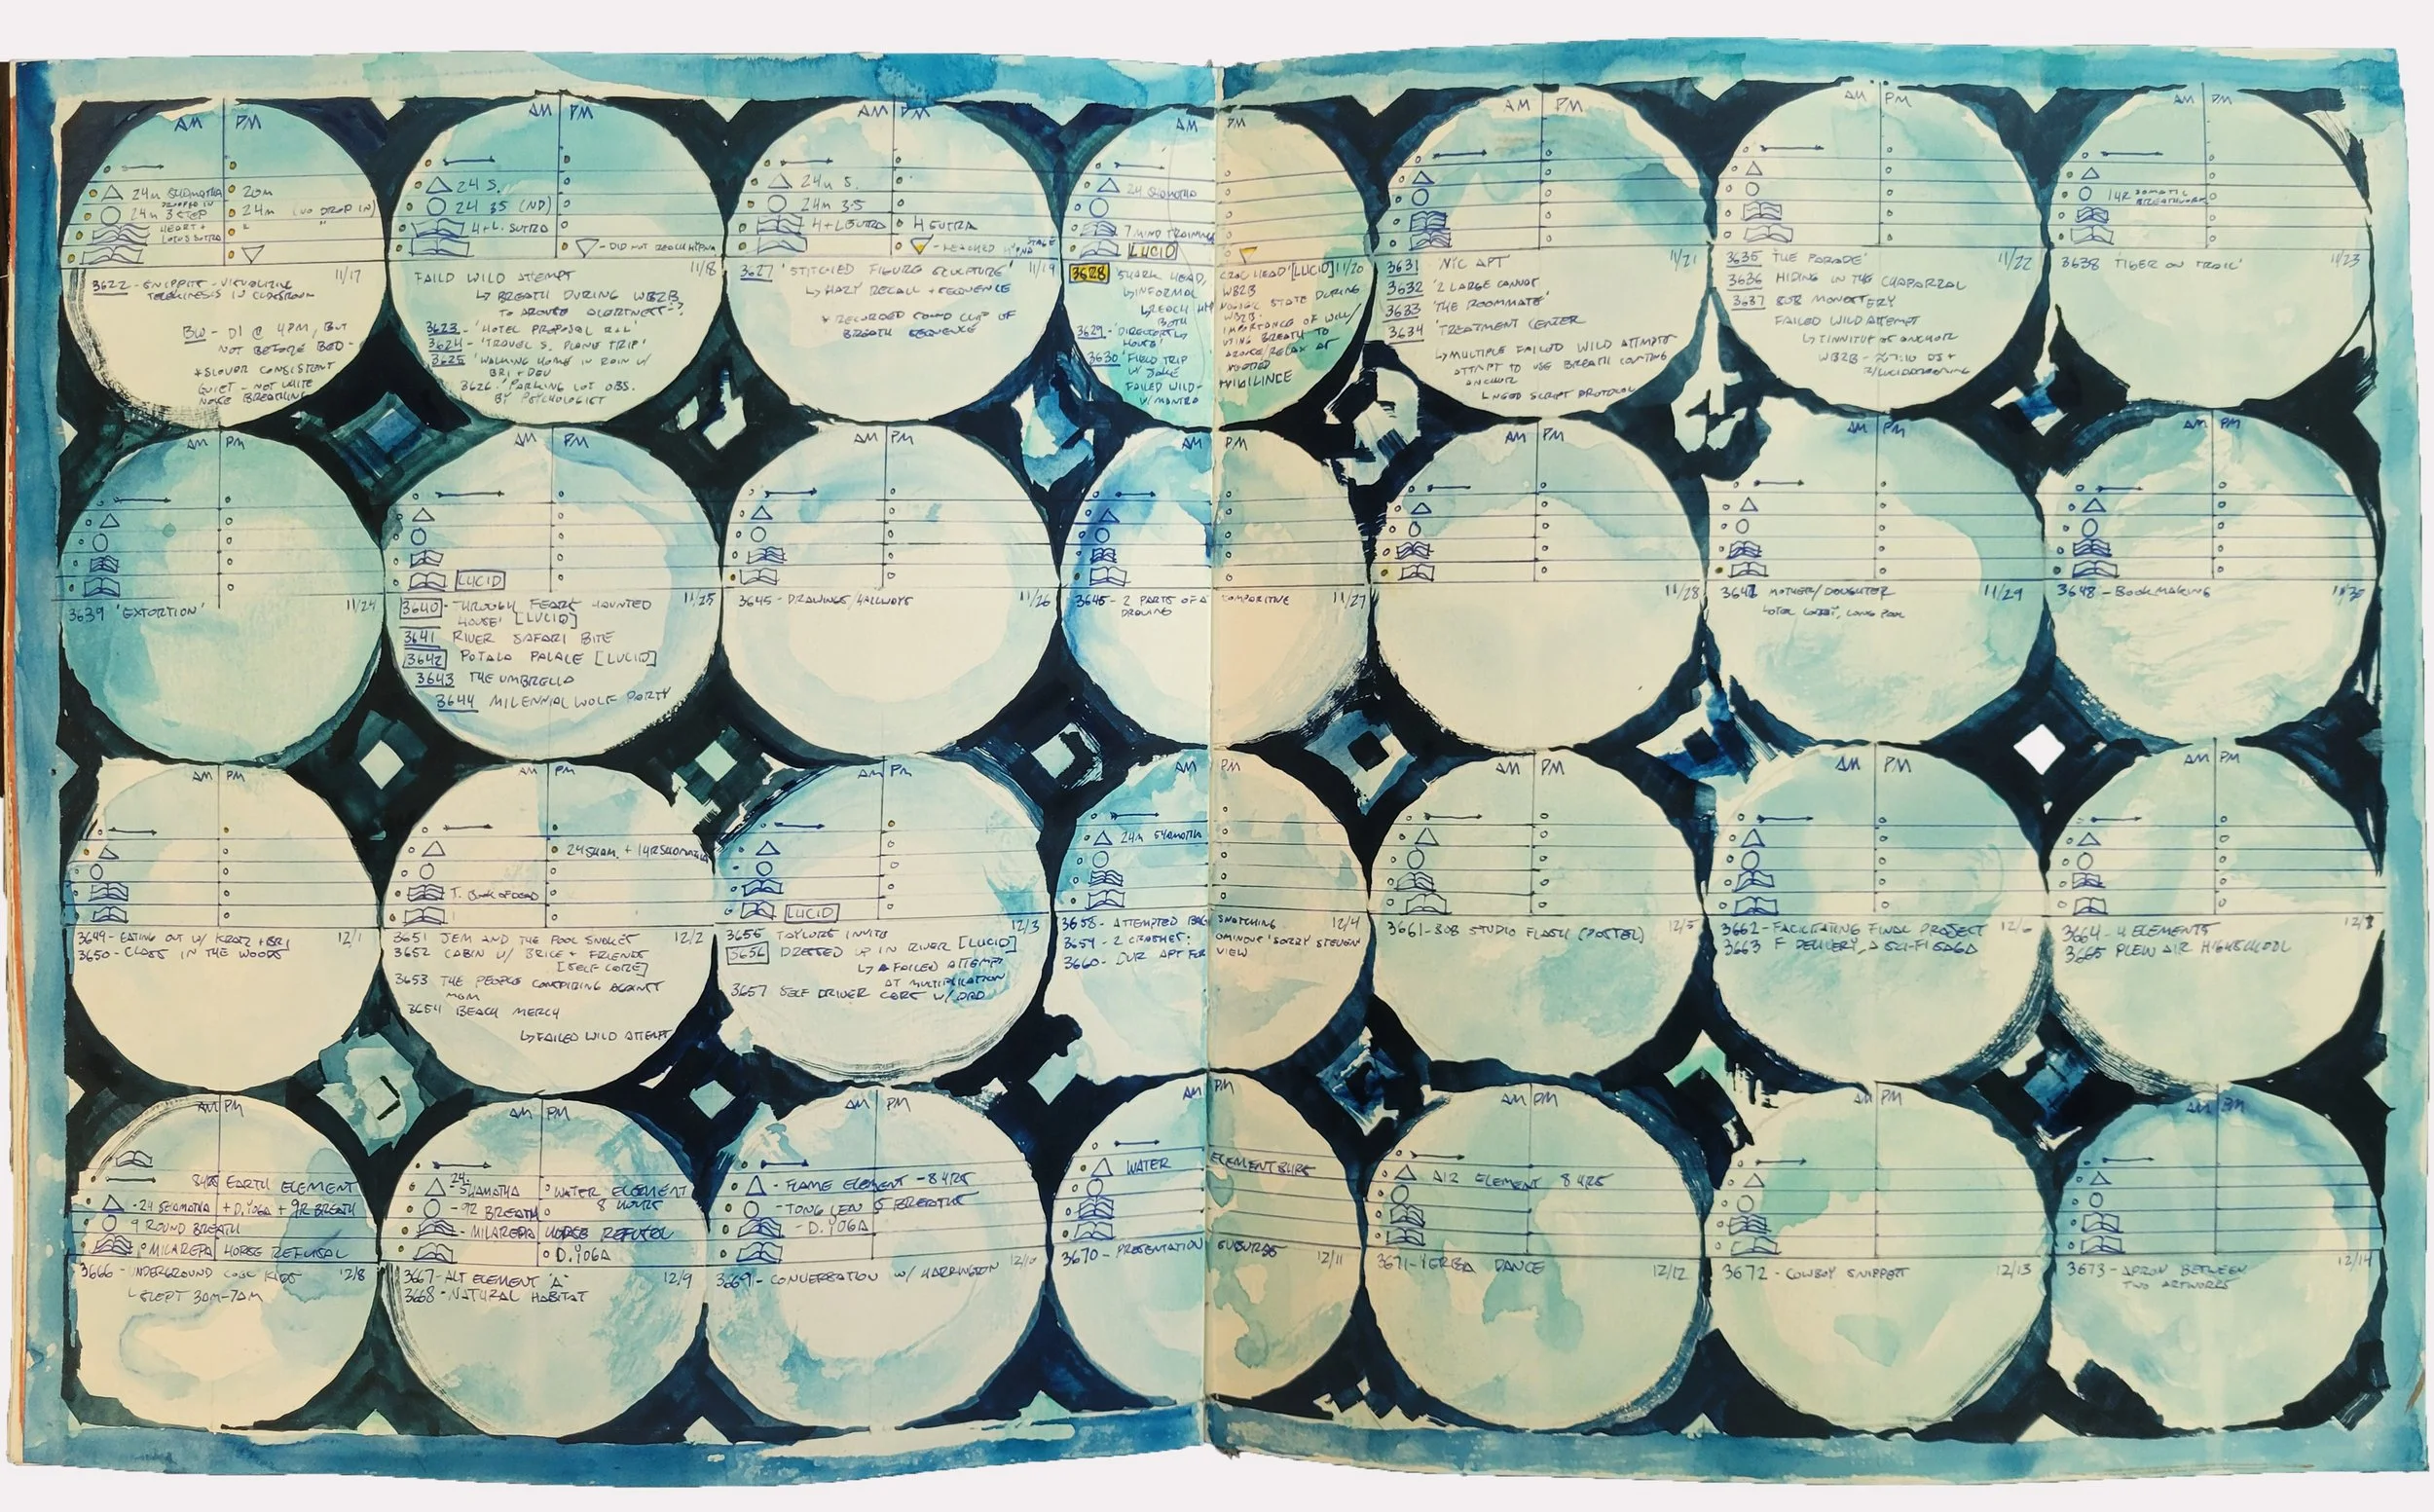 AM PM
24m SHAMATHA 20m
DROPPED IN
24m 3 STEP 24m (NO DROP IN)
HEART +
LOTUS SUTRA
11/17
3622 - SNIPPIT - VISUALIZING
TELEKINESIS IN CLASSROOM
BW - DI @ 4PM, BUT
NOT BEFORE BED -
* SLOWER CONSISTENT
QUIET - NOT WHITE
NOISE BREATHING
AM PM
24 S.
24 3S (ND)
H + L. SUTRA
▽ - DID NOT REACH HYPNA
11/18
FAILD WILD ATTEMPT
↳ BREATH DURING WB2B
TO AROUSE ALERTNESS?
3623 - 'HOTEL PROPOSAL R+L'
3624 - 'TRAVEL S. PLANE TRIP'
3625 'WALKING HOME IN RAIN W/
BRI + DEV
3626 'PARKING LOT OBS.
BY PSYCHOLOGIST
AM PM
24m S.
24m 3S
H + L SUTRA H SUTRA
▽ - REACHED HYPNA STAGE
11/19
3627 'STITCHED FIGURE SCULPTURE'
↳ HAZY RECALL + SEQUENCE
* RECORDED SOUND CLIP OF
BREATH SEQUENCE
AM PM
24 SHAMATHA
7 MIND TRAINING
LUCID
3628 SHARK HEAD, CROC HEAD' [LUCID] 11/20
↳ INFORMAL WB2B
STATE DURING
BOTH WB2B.
IMPORTANCE OF WILL/
USING BREATH TO
AROUSE/RELAX AT
NEEDED
VIGILINCE
3629 - 'DIRECTORS
HOUSE'
3630 'FIELD TRIP
W/ JAKE
FAILED WILD -
W/ MANTRA
AM PM
11/21
3631 'NYC APT'
3632 '2 LARGE CANNOT
3633 'THE ROOMMATE'
3634 'TREATMENT CENTER
↳ MULTIPLE FAILED WILD ATTMPTS
ATTMPT TO USE BREATH COUNTING
ANCHOR
↳ NEED SCRIPT PROTOCOL
AM PM
11/22
3635 'THE PARADE'
3636 HIDING IN THE CHAPARRAL
3637 808 MONASTERY
FAILED WILD ATTEMPT
↳ TINNITUS AS ANCHOR
WB2B - 7:10
AM PM
1HR SOMATIC
BREATHWORK
3638 'TIGER ON TRAIL' 11/23
AM PM
3639 'EXTORTION' 11/24
AM PM
LUCID
3640 - THROUGH FEARS HAUNTED 11/25
HOUSE' [LUCID]
3641 RIVER SAFARI BITE
3642 POTALA PALACE [LUCID]
3643 THE UMBRELLA
3644 MILENNIAL WOLF PARTY
AM PM
3645 - DRAWINGS/HALLWAYS 11/26
AM PM
3645 - 2 PARTS OF A COMPARITIVE 11/27
DRAWING
AM PM
11/28
AM PM
3647 MOTHER/DAUGHTER 11/29
HOTEL LOBBY, LONG POOL
AM PM
3648 - BOOKMAKING 11/30
AM PM
3649 - EATING OUT W/ KRATZ + BRI 12/1
3650 - CLASS IN THE WOODS
AM PM
24 SHAM. + 1HR SHAMATHA
T. BOOK OF DEAD
3651 JEM AND THE POOL SNAKES 12/2
3652 CABIN W/ BRICE + FRIENDS
[SELF CORE]
3653 THE PEOPLE CONSPIRING AGAINST
MOM
3654 BEACH MERCH
↳ FAILED WILD ATTEMPT
AM PM
LUCID
3655 TAYLORS INVITE 12/3
3656 DRESSED UP IN RIVER [LUCID]
↳ A FAILED ATTEMPT
AT MULTIPLICATION
3657 SELF DRIVER CORE W/ DAD
AM PM
24m SHAMATHA
3658 - ATTEMPTED BAG SNATCHING 12/4
3659 - 2 CRASHES: OMINOUS 'SORRY STEVEN'
3660 - OUR APT FOR VIEW
AM PM
3661 - 808 STUDIO FLASH (POSTER) 12/5
AM PM
3662 - FACILITATING FINAL PROJECT 12/6
3663 F DELIVERY, A SCI-FI SAGA
AM PM
3664 - 4 ELEMENTS 12/7
3665 PLEW AIR HIGHSCHOOL
AM PM
8HRS EARTH ELEMENT
- 24 SHAMATHA + D. YOGA + 9R BREATH
9 ROUND BREATH
MILAREPA HORSE REFUSAL
3666 - UNDERGROUND KIDS 12/8
↳ SLEPT 3AM-7AM
AM PM
24
- SHAMATHA WATER ELEMENT
- 9R BREATH 8 HOURS
- MILAREPA HORSE REFUSAL
D. YOGA
3667 - ALT ELEMENT 'A' 12/9
3668 - NATURAL HABITAT
AM PM
- FLAME ELEMENT - 8 HRS
- TONG LEN 5 BREATHS
- D. YOGA
3669 - CONVERSATION W/ HARRINGTON 12/10
AM PM
WATER ELEMENT 8HRS
3670 - PRESENTATION SUBURBS 12/11
AM PM
AIR ELEMENT 8 HRS
3671 - YERBA DANCE 12/12
AM PM
3672 - COWBOY SNIPPET 12/13
AM PM
3673 - APRON BETWEEN 12/14
TWO ARTWORKS